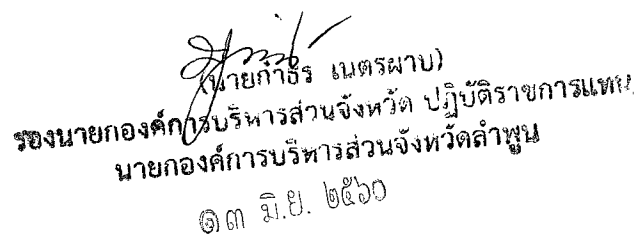 (นายกำธร เนตรผาบ)
รองนายกองค์การบริหารส่วนจังหวัด ปฏิบัติราชการแทน
นายกองค์การบริหารส่วนจังหวัดลำพูน
๑๓ มิ.ย. ๒๕๖๐